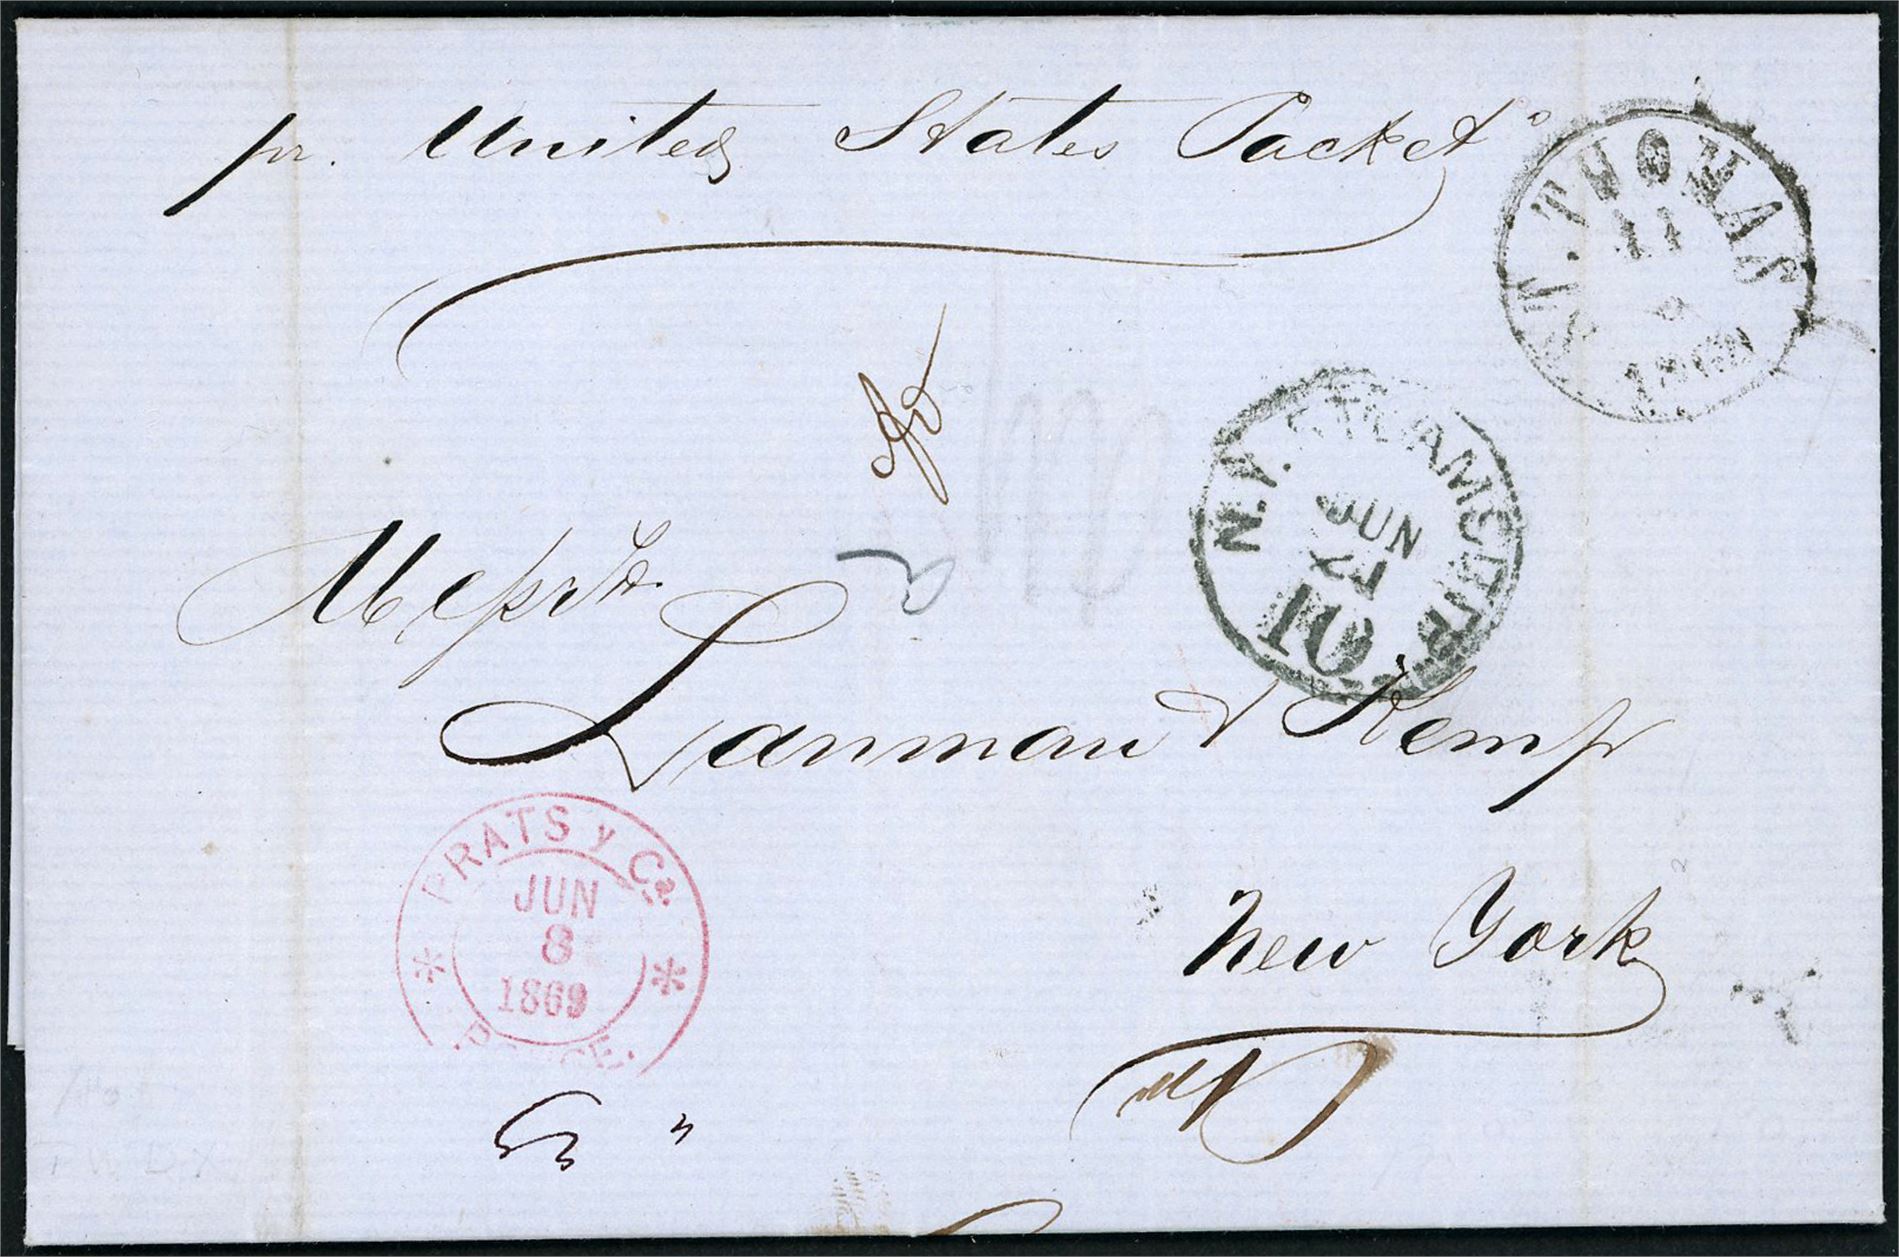 pr. United States Packet
ST. THOMAS
11
N.Y. STEAMSHIP
JUN
10
Messrs.
Lanman & Kemp
PRATS Y Ca.
JUN
8
1869
New York